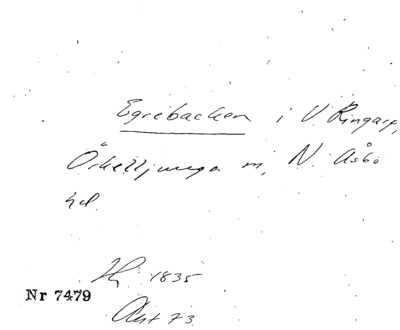 Egrebacken i V. Ringarp,
Örkelljunga m, N. Åsbo
hd.
Hy 1835
Nr 7479
Akt 73